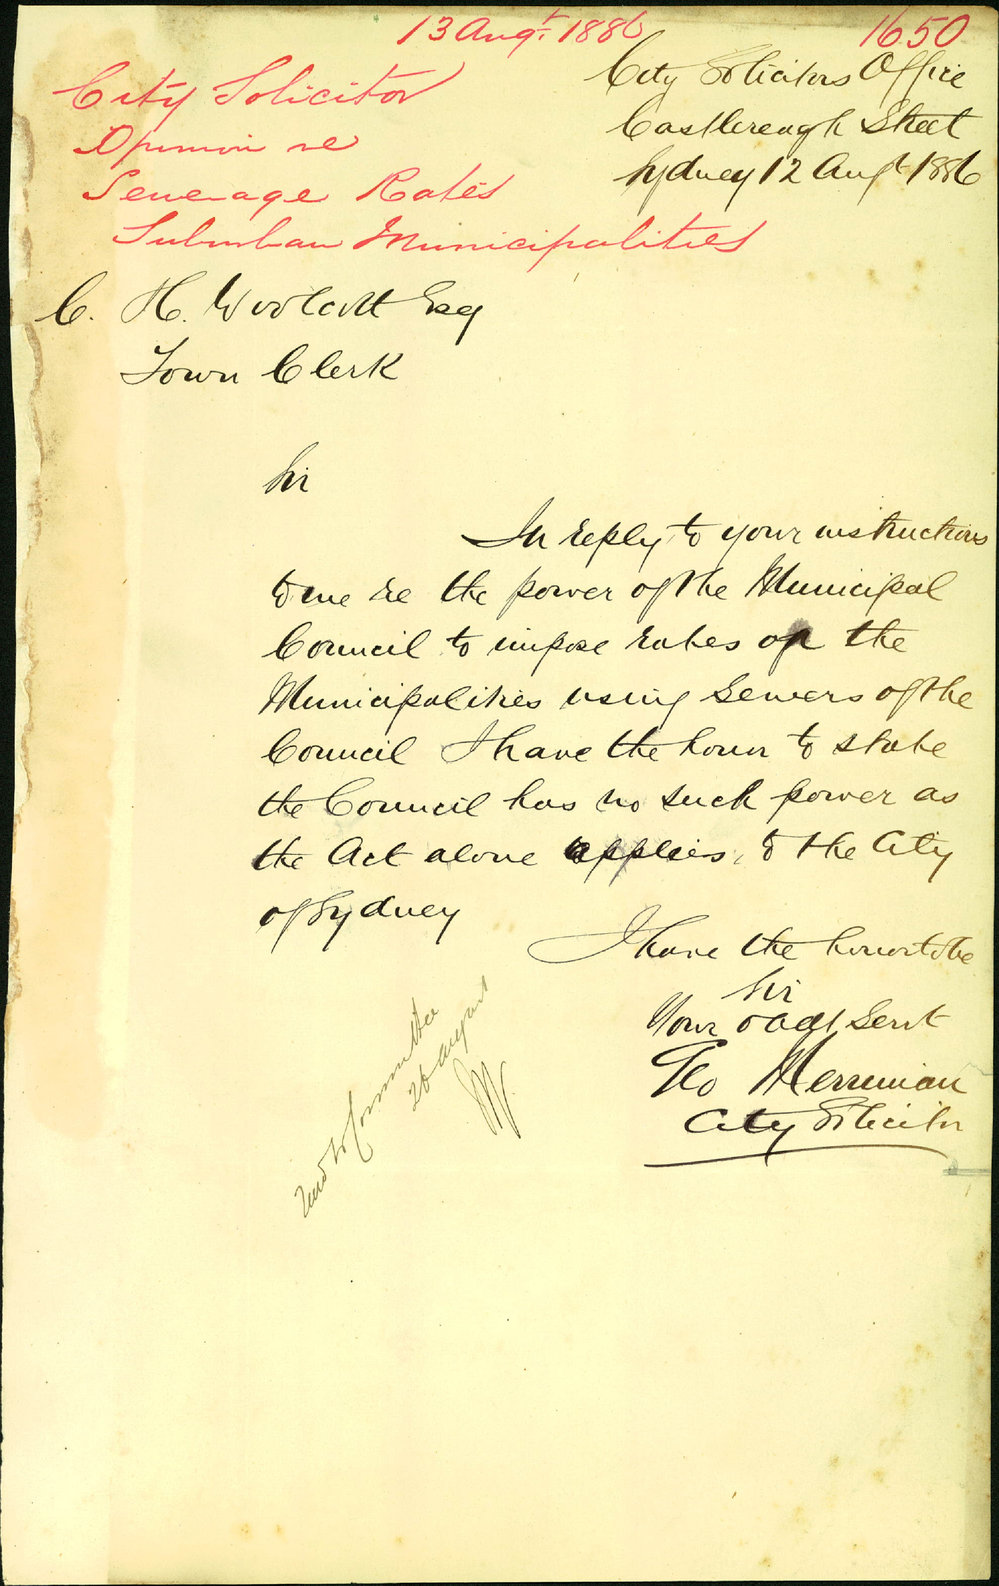 13 Augt. 1886
1650
City Solicitor
Opinion re
Sewerage Rates
Suburban Municipalities
City Solicitors Office
Castlereagh Street
Sydney 12 Augt 1886
C. H. Woolcott Esq
Town Clerk
Sir
In reply to your instructions
to me re the power of the Municipal
Council to impose rates on the
Municipalities using Sewers of the
Council I have the honor to state
the Council has no such power as
the Act alone applies to the City
of Sydney
I have the honor to be
Sir
Your obedt Servt
Geo Merriman
City Solicitor
Read to Committee
26 August